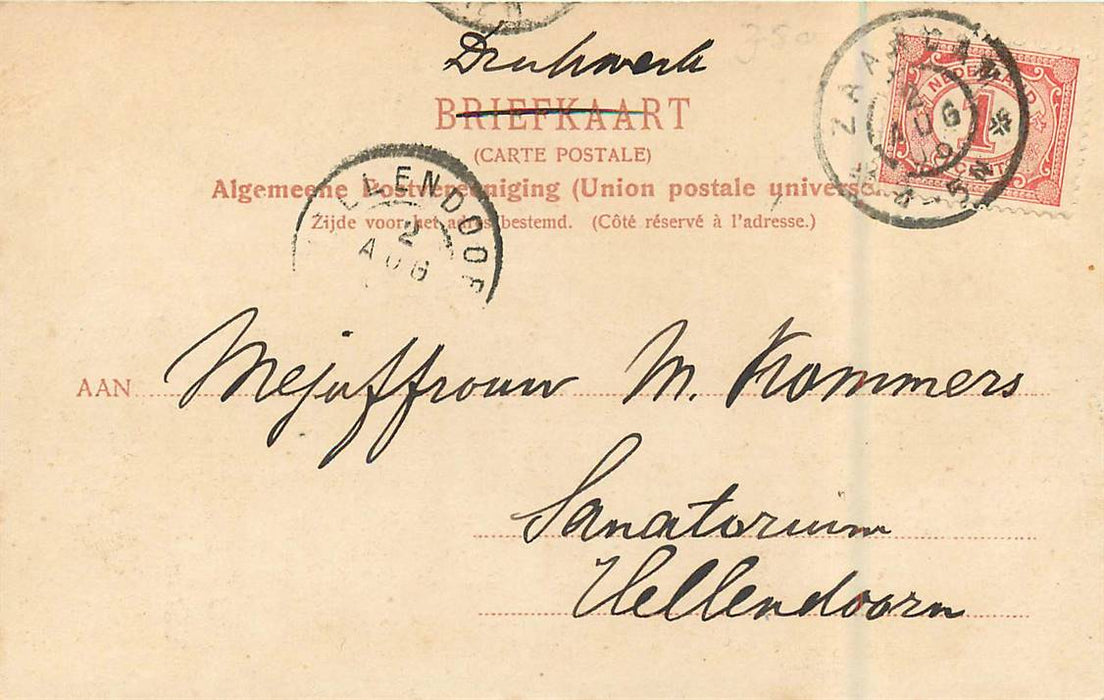 Drukwerk
BRIEFKAART
(CARTE POSTALE)
Algemeene Postvereeniging (Union postale universelle)
Zijde voor het adres bestemd. (Côté réservé à l'adresse.)
ZAANDAM
2
AUG
NEDERLAND
1
CENT
ELLENDOOR
2
AUG
AAN Mejuffrouw M. Krommers
Sanatorium
Hellendoorn